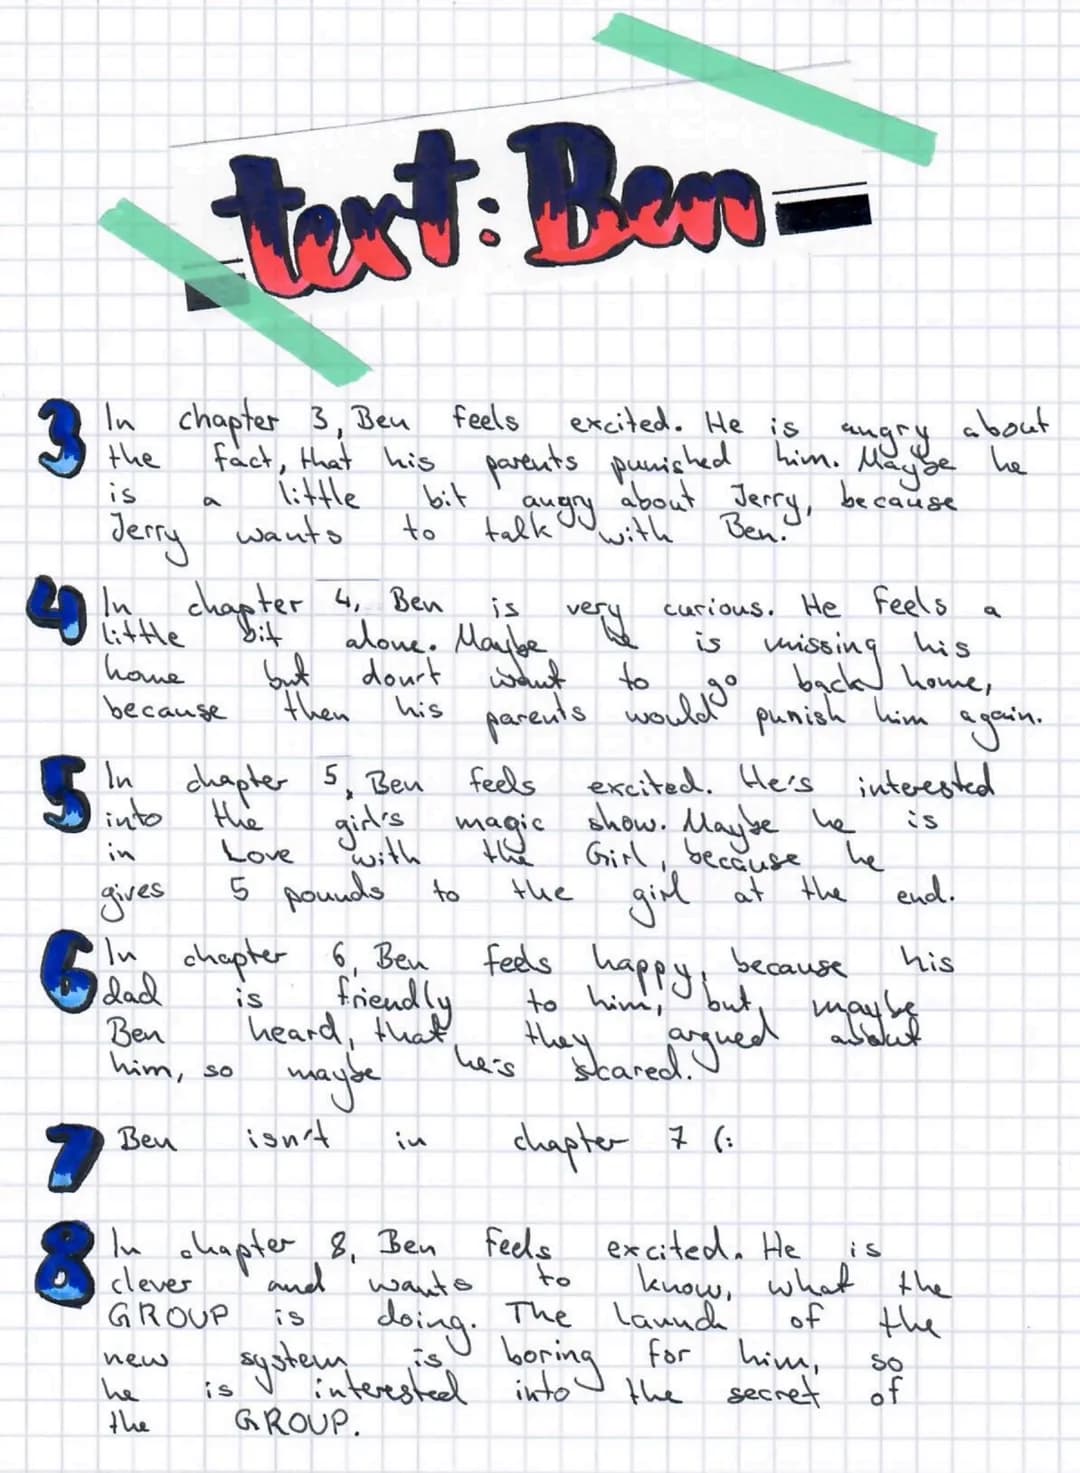 text: Ben
3 In chapter 3, Ben feels excited. He is angry about
the fact, that his parents punished him. Maybe he
is a little bit angry about Jerry, because
Jerry wants to talk with Ben.
4 In chapter 4, Ben is very curious. He feels a
little bit alone. Maybe he is missing his
home but don't want to go back home,
because then his parents would punish him again.
5 In chapter 5, Ben feels excited. He's interested
into the girl's magic show. Maybe he is
in Love with the Girl, because he
gives 5 pounds to the girl at the end.
6 In chapter 6, Ben feels happy, because his
dad is friendly to him, but, maybe
Ben heard, that they argued about
him, so maybe he's scared.
7 Ben isn't in chapter 7 (:
8 In chapter 8, Ben feels excited. He is
clever and wants to know, what the
GROUP is doing. The launch of the
new system is boring for him, so
he is interested into the secret of
the GROUP.